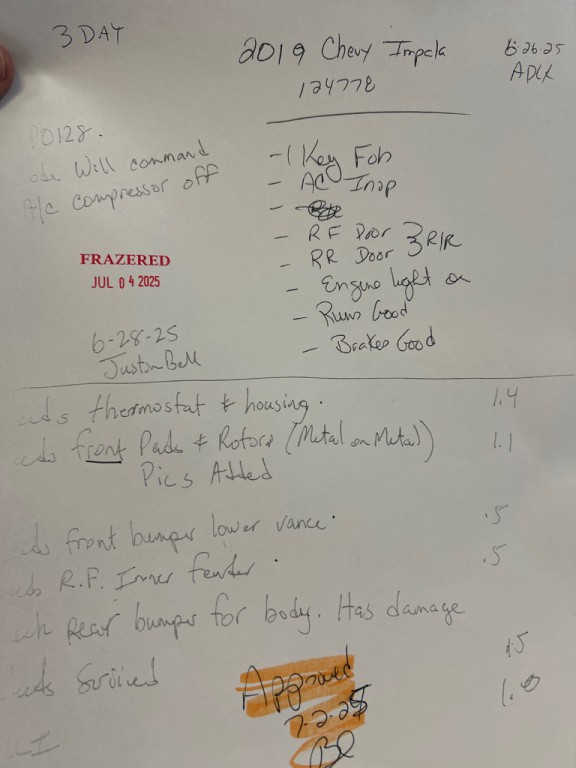 3 DAY
2019 Chevy Impala
6·26·25
ADLX
124778
P0128.
Will command
A/c compressor off
- 1 Key Fob
- AC Inop
-
- RF Door } R/R
- RR Door
- Engine light on
- Runs Good
- Brakes Good
FRAZERED
JUL 04 2025
6-28-25
Justin Bell
thermostat & housing. 1.4
front Pads & Rotors (Metal on Metal) 1.1
Pics Added
front bumper lower vance. .5
R.F. Inner fender. .5
Rear bumper for body. Has damage
.5
1.0
Approved
7-2-25